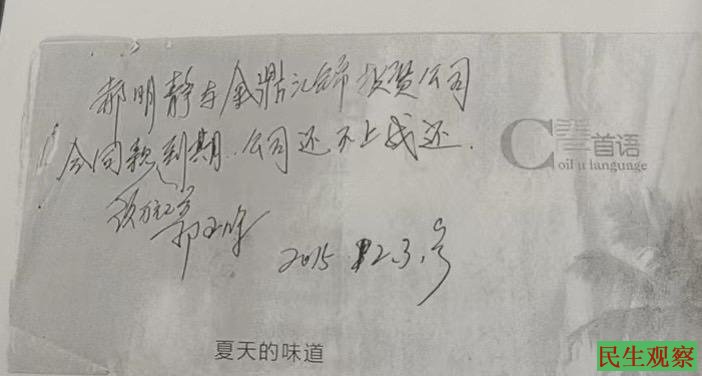 郝明静与金鼎汇合币投资公司
合同款到期.公司还不上我还.
2015.12.3.号
C 卷首语
oil u language
夏天的味道
民生观察